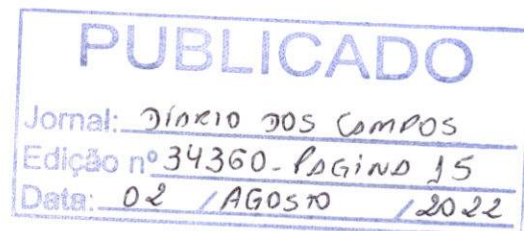 PUBLICADO
Jornal: DIÁRIO DOS CAMPOS
Edição nº 34360 - PAGINA 15
Data: 02 / AGOSTO / 2022